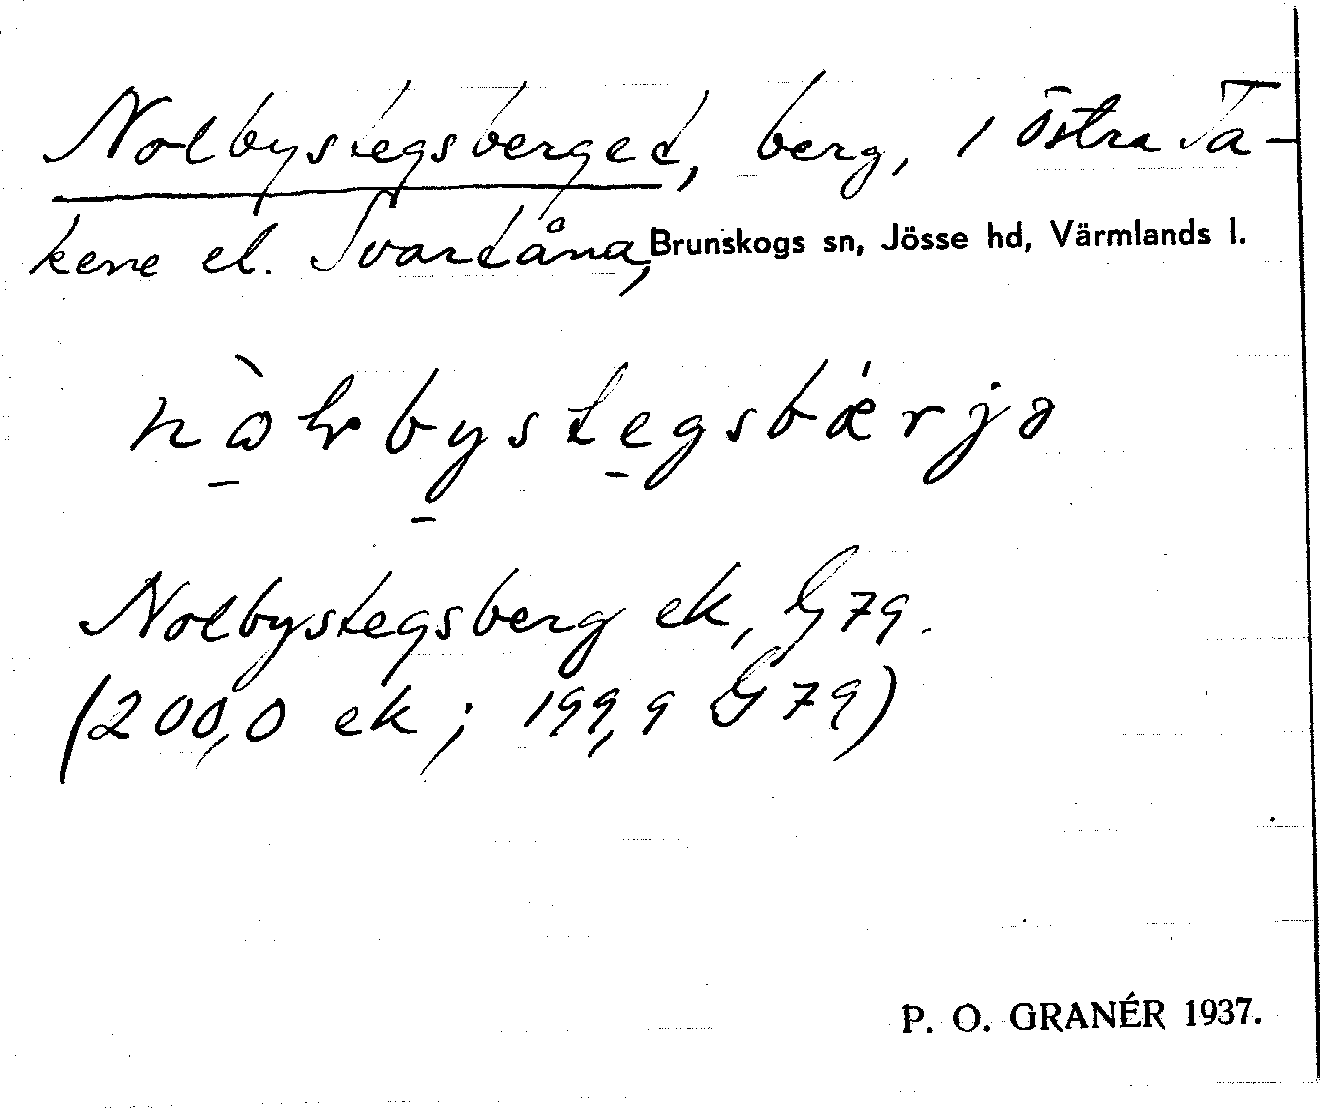 Nolbystegsberget, berg, i Östra Ta-
kene el. Svartåna, Brunskogs sn, Jösse hd, Värmlands l.
Nolbystegsberg ek, G79.
(200,0 ek; 199,9 G79)
P. O. GRANÉR 1937.